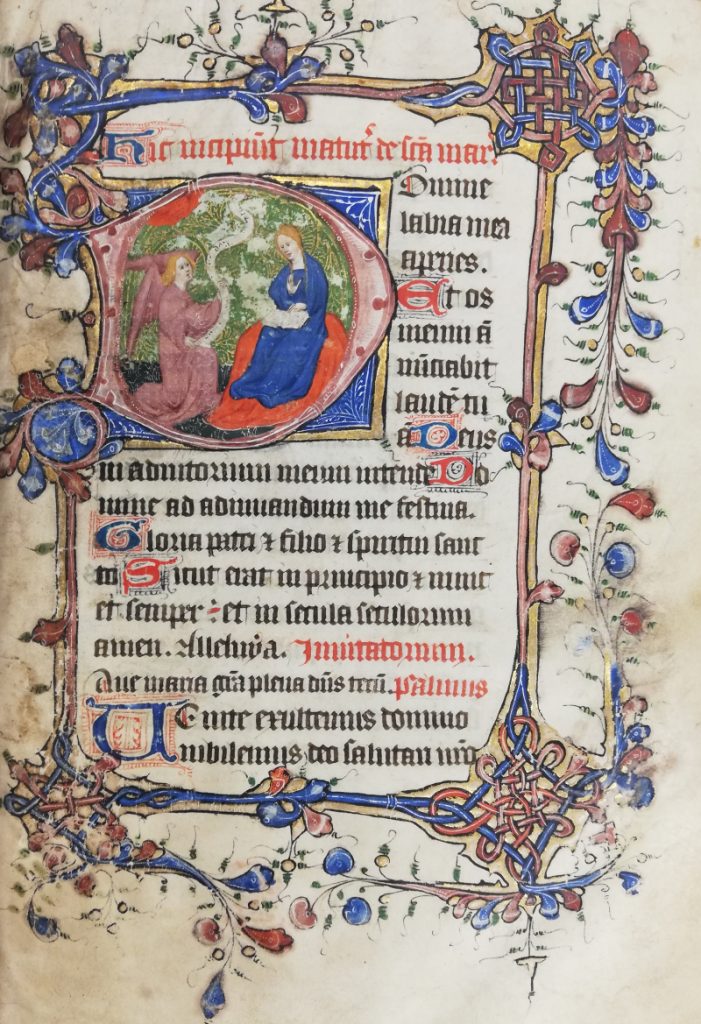 Hic incipiūt matut᷑ de scā mar᷑
Domine
labia mea
apries.
Et os
meum ā
nūciabit
laudē tu
ā Deus
in adiutorium meum intende Do
mine ad adiuuandum me festina.
Gloria patri ⁊ filio ⁊ spiritui sanc
to Sicut erat in principio ⁊ nunc
et semper : et in secula seculorum
amen. Alleluya. Inuitatorium.
Aue maria gr̄a plena dn̄s tecū. Psalmus
Uenite exultemus domino
iubilemus deo salutari nr̄o